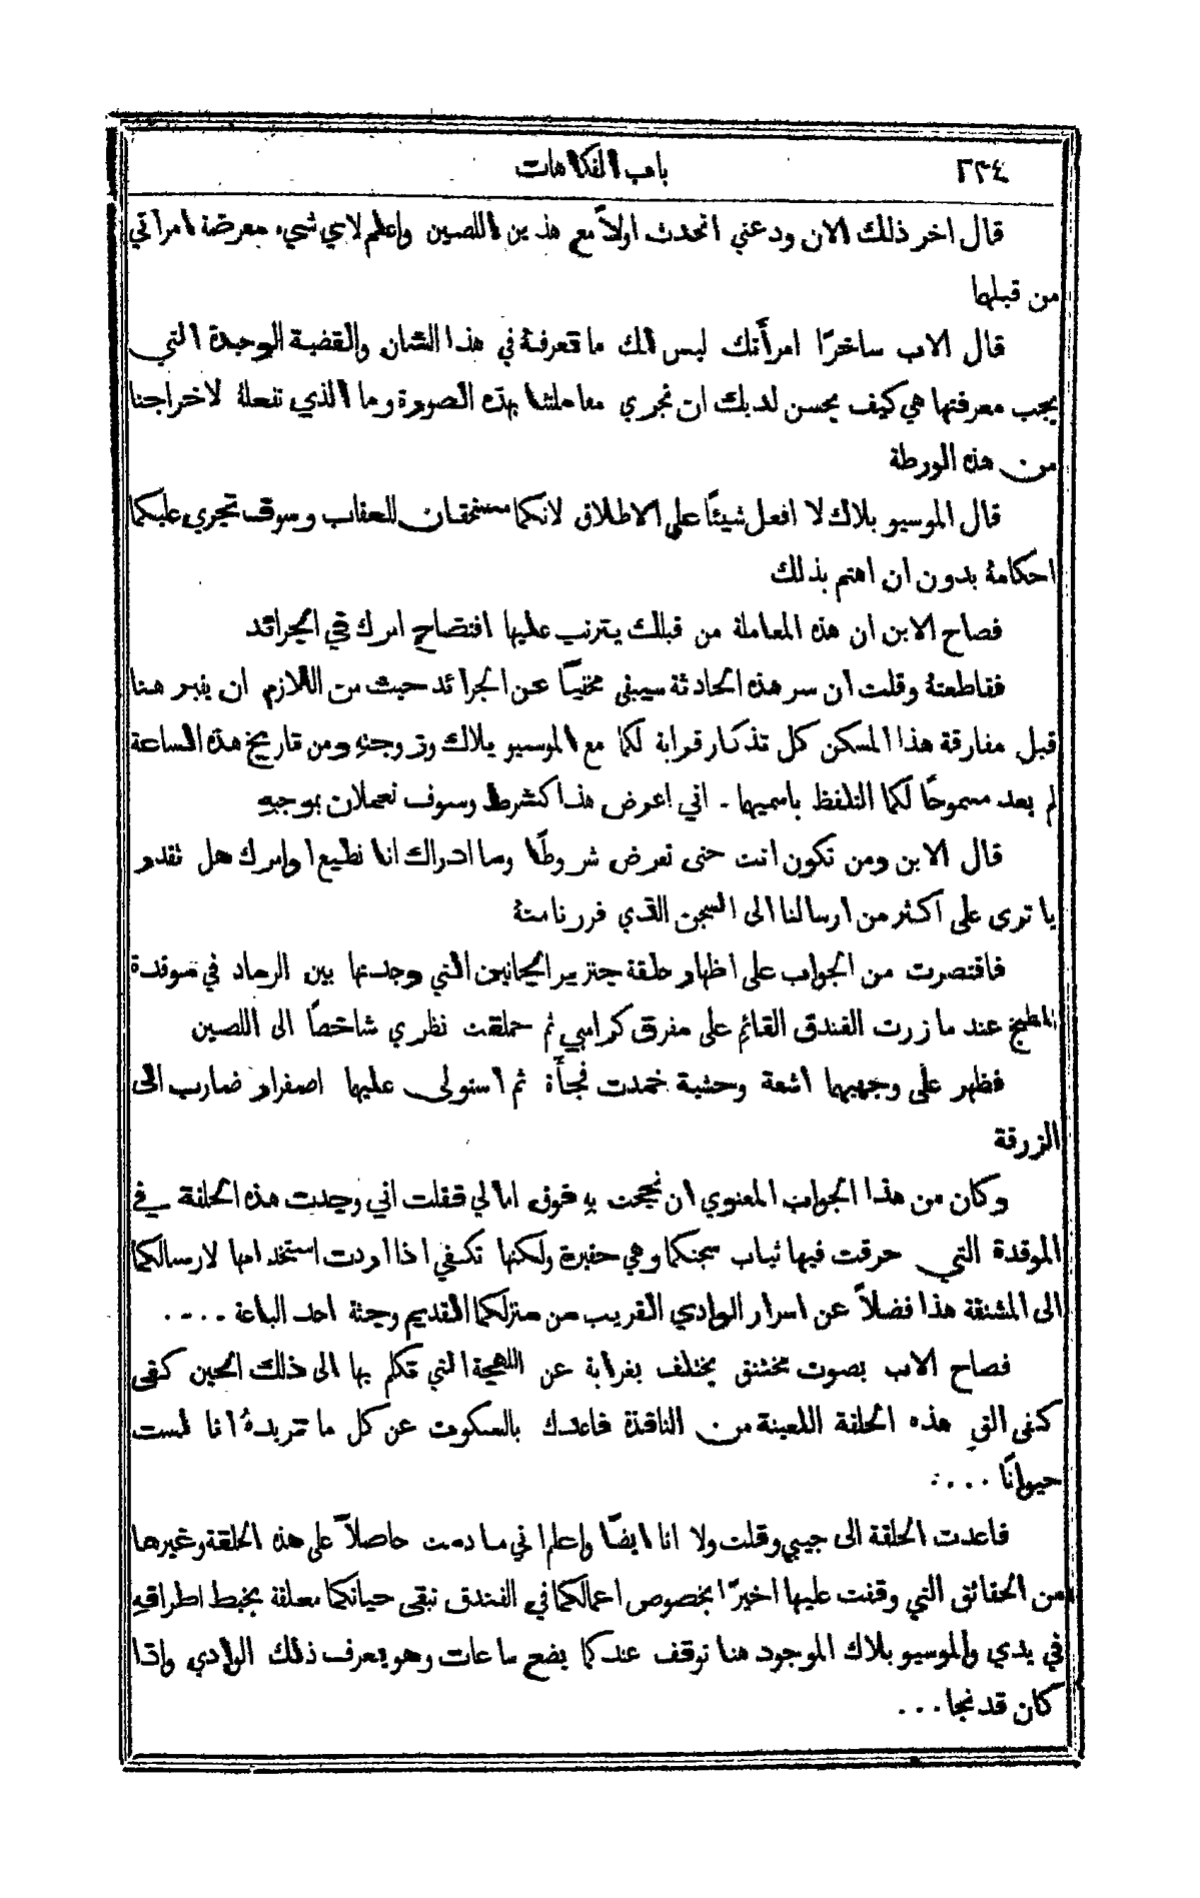 ٢٣٤
باب الفكاهات
قال اخر ذلك الان ودعني اتحدث اولاً مع هذين اللصين واعلم لاي شيء معرضة امراتي
من قبلها
قال الاب ساخرًا امرأتك ليس لك ما تعرفهُ في هذا الشان والقضية الوحيدة التي
يجب معرفتها هي كيف يحسن لديك ان نجري معاملتنا بهذه الصورة وما الذي تفعلهُ لاخراجنا
من هذه الورطة
قال الموسيو بلاك لا افعل شيئًا على الاطلاق لانكما مستحقان للعقاب وسوف تجري عليكما
احكامهُ بدون ان اهتم بذلك
فصاح الابن ان هذه المعاملة من قبلك يترتب عليها افتضاح امرك في الجرائد
فقاطعتهُ وقلت ان سر هذه الحادثة سيبقى مخفيًا عن الجرائد حيث من اللازم ان يقبر هنا
قبل مفارقة هذا المسكن كل تذكار قرابة لكما مع الموسيو بلاك وزوجتهِ ومن تاريخ هذه الساعة
لم يعد مسموحًا لكما التلفظ باسميهما . اني اعرض هذا كشرط وسوف تعملان بموجبهِ
قال الابن ومن تكون انت حتى تعرض شروطًا وما ادراك اننا نطيع اوامرك هل تقدر
يا ترى على اكثر من ارسالنا الى السجن الذي فررنا منهُ
فاقتصرت من الجواب على اظهار حلقة جنزير المجانين التي وجدتها بين الرماد في موقدة
المطبخ عند ما زرت الفندق القائم على مفرق كرامبي ثم حملقت نظري شاخصًا الى اللصين
فظهر على وجهيهما اشعة وحشية خمدت فجأة ثم استولى عليها اصفرار ضارب الى
الزرقة
وكان من هذا الجواب المعنوي ان نجحت بهِ فوق امالي فقلت اني وجدت هذه الحلقة في
الموقدة التي حرقت فيها ثياب سجنكما وهي حقيرة ولكنها تكفي اذا اردت استخدامها لارسالكما
الى المشنقة هذا فضلاً عن اسرار الوادي القريب من منزلكما القديم وجثة احد الباعة ....
فصاح الاب بصوت مختنق يختلف بغرابة عن اللهجة التي تكلم بها الى ذلك الحين كفى
كفى القِ هذه الحلقة اللعينة من النافذة فاعدك بالسكوت عن كل ما تريدهُ انا لست
حيوانًا ....
فاعدت الحلقة الى جيبي وقلت ولا انا ايضًا واعلم اني ما دمت حاصلاً على هذه الحلقة وغيرها
من الحقائق التي وقفت عليها اخيرًا بخصوص اعمالكما في الفندق تبقى حياتكما معلقة بخيط اطرافهِ
في يدي والموسيو بلاك الموجود هنا توقف عندكما بضع ساعات وهو يعرف ذلك الوادي واذا
كان قد نجا ...